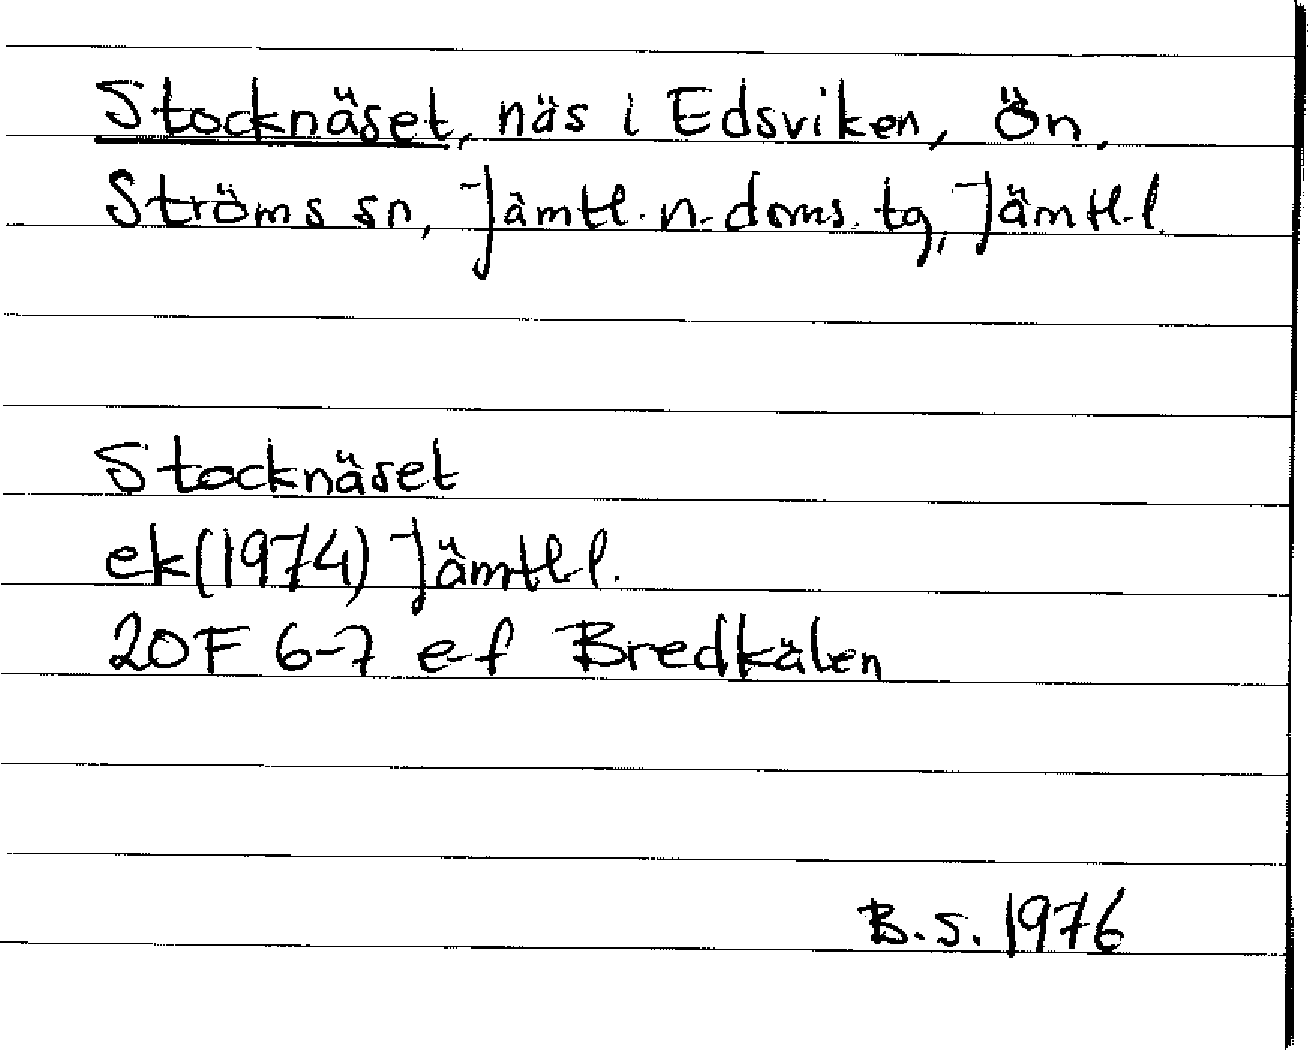 Stocknäset, näs i Edsviken, Ön,
Ströms sn, Jämtl. n. doms. tg, Jämtl. l.
Stocknäset
ek (1974) Jämtl. l.
20F 6-7 e-f Bredkälen
B.S. 1976